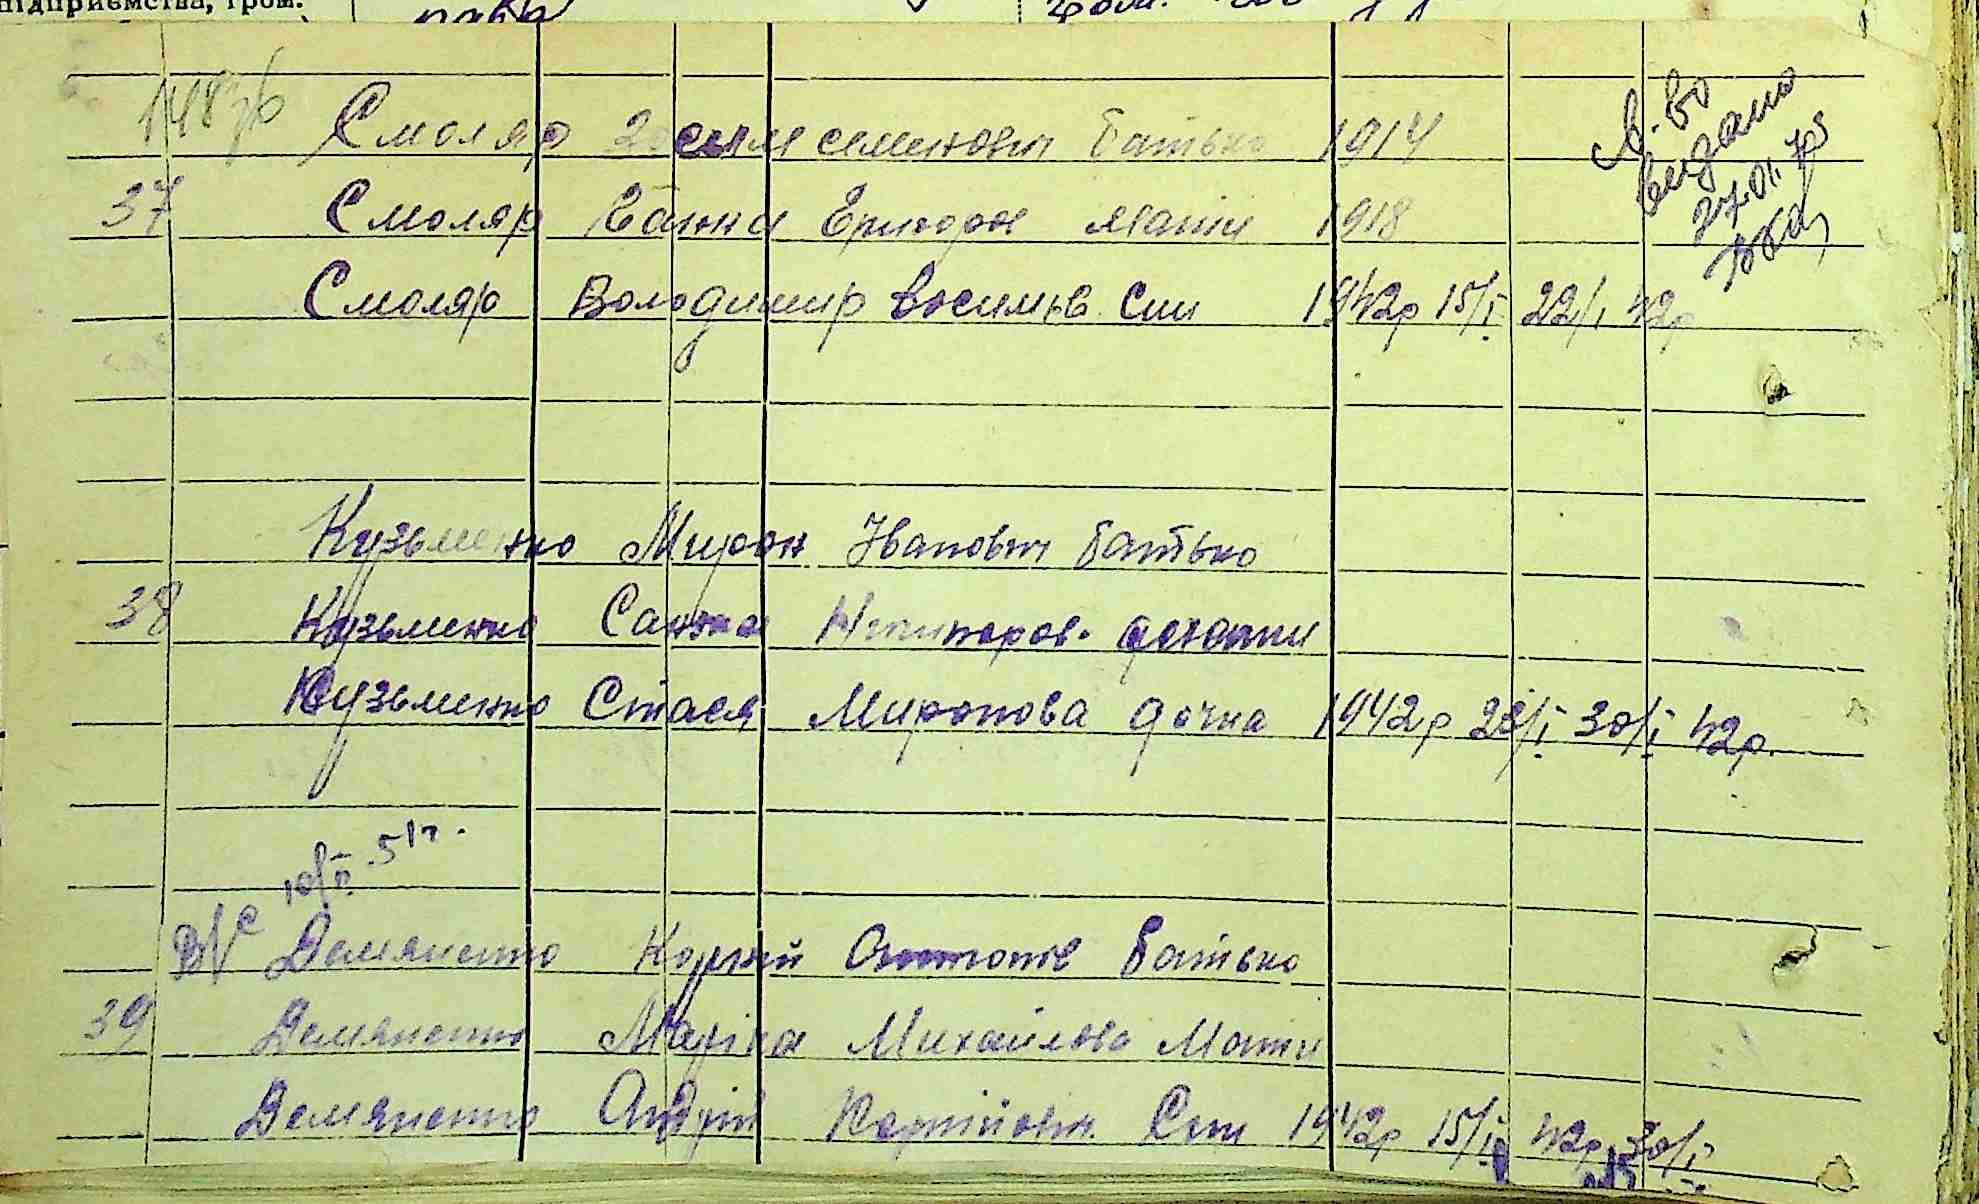 підприємства, грош.
148
Смоляр семенович батько 1914
37 Смоляр Ганна мати 1918
Смоляр Володимир Восильів Син 1942р 15/I 22/I 42р
С-во видано 27.01.
Кузьменко Мирон Іванович батько
38 Кузьменко Нечипоров.
Кузьменко Стася Миронова дочка 1942р 28/I 30/I 42р.
10/II 51р.
В/С Демяненко Корній Антонів батько
39 Демяненко Маріка Михайлова Мати
Демяненко Андрій Корнійович Син 1942р 15/I 42р 30/I